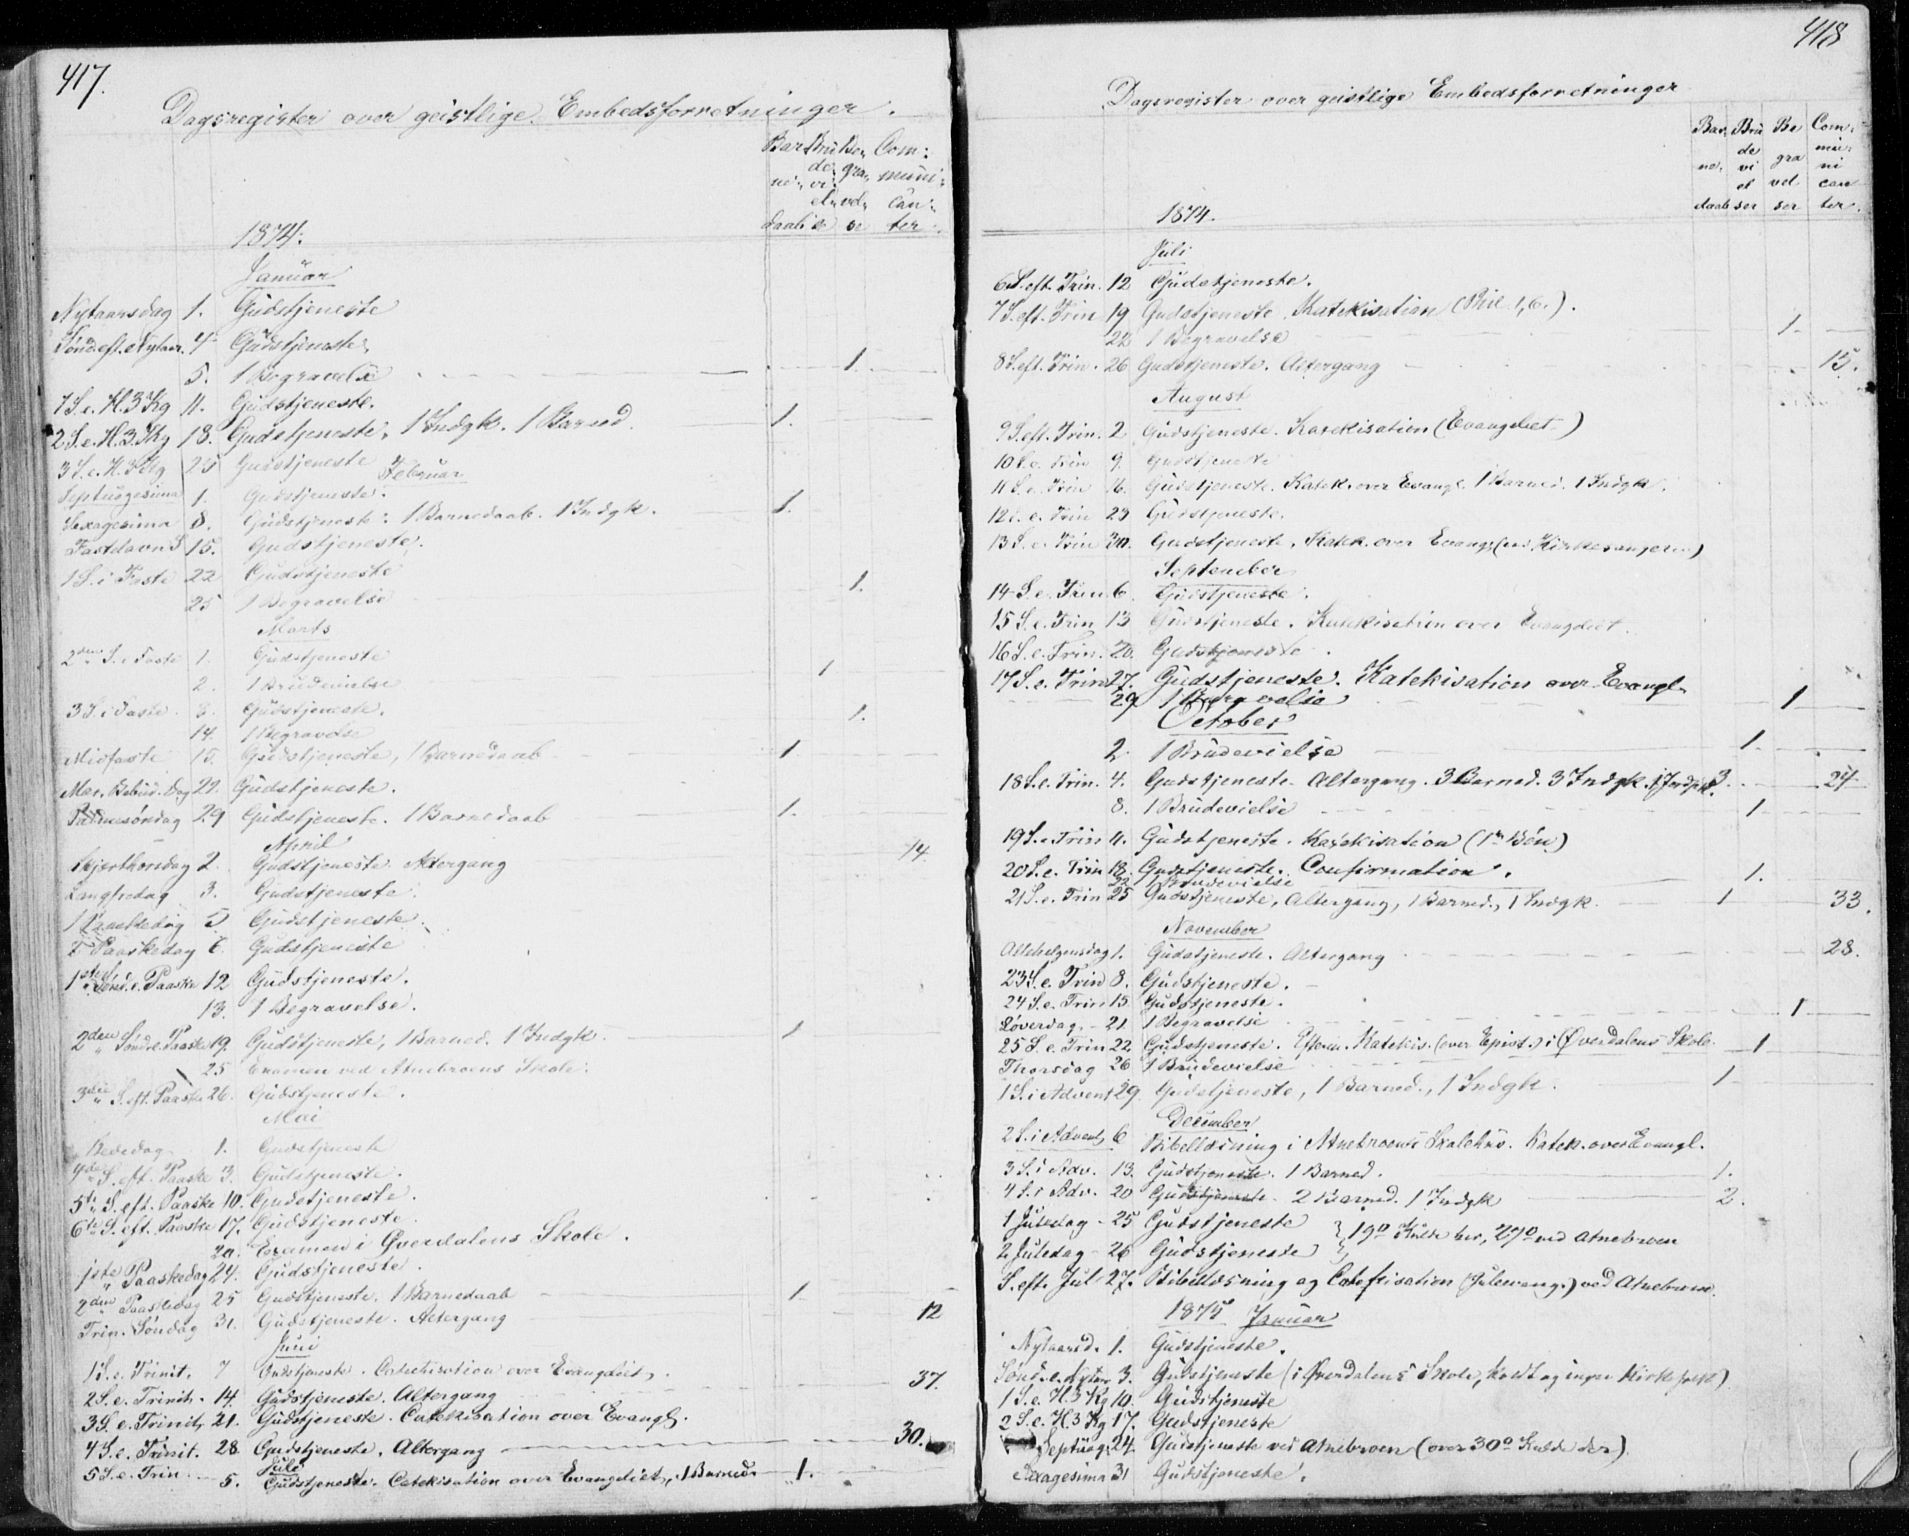 417.
Dagsregister over geistlige Embedsforretninger.
Bar- Bru Be- Com-
de gra- muni-
ne- vi-
el- vel- can-
daab se se ter.
1874.
Januar
Nytaarsdag 1. Gudstjeneste
Sønd. eft. Nytaar. 4 Gudstjeneste.
5. 1 Begravelse 1.
1 S. e. H. 3 Kg 11. Gudstjeneste.
2 S. e. H. 3. Kg 18. Gudstjeneste, 1 Indgk. 1 Barned. 1.
3 S. e. H. 3 Kg 25 Gudstjeneste
Februar
Septuagesima 1. Gudstjeneste.
Sexagesima 8. Gudstjeneste. 1 Barnedaab. 1 Indgk. 1.
Fastelavns S 15. Gudstjeneste.
1 S. i Faste 22 Gudstjeneste
25 1 Begravelse 1.
Marts
2den S. i Faste 1. Gudstjeneste
2. 1 Brudevielse 1
3 S. i Faste. 8. Gudstjeneste.
14. 1 Begravelse 1.
Midfaste 15. Gudstjeneste, 1 Barnedaab 1.
Mar. Bebud. Dag 22. Gudstjeneste.
Palmesøndag 29 Gudstjeneste. 1 Barnedaab 1.
April
Skjærthorsdag 2. Gudstjeneste Altergang 14.
Langfredag 3. Gudstjeneste.
1 Paaskedag 5 Gudstjeneste.
2 Paaskedag 6. Gudstjeneste
1ste Sønd. e. Paaske 12 Gudstjeneste.
13. 1 Begravelse.
2den Sønd. e. Paaske 19. Gudstjeneste, 1 Barned. 1 Indgk. 1
25 Examen ved Atnebroens Skole.
3die S. eft. Paaske 26. Gudstjeneste.
Mai
Bededag 1. Gudstjeneste
4de S. eft. Paaske 3. Gudstjeneste.
5te S. eft. Paaske 10. Gudstjeneste.
6te S. eft. Paaske 17. Gudstjeneste.
20. Examen i Øverdalens Skole.
1ste Paaskedag 24. Gudstjeneste.
2den Paaskedag 25 Gudstjeneste. 1 Barnedaab 1.
Trin. Søndag 31. Gudstjeneste. Altergang 12
Juni
1 S. e. Trinit. 7 Gudstjeneste. Catechisation over Evangeliet.
2 S. e. Trinit. 14. Gudstjeneste. Altergang 37.
3 S. e. Trinit. 21. Gudstjeneste. Catekisation over Evangl.
4 S. e. Trinit. 28 Gudstjeneste. Altergang 30.
Juli
5 S. e. Trin. 5. Gudstjeneste. Catekisation over Evangeliet, 1 Barned. 1.
418
Dagsregister over geistlige Embedsforretninger
Bar- Bru Be Com-
de gra mu-
ne- vi ni
el vel can
daab ser ser ter.
1874.
Juli
6 S. eft. Trin. 12 Gudstjeneste.
7 S. eft. Trin 19 Gudstjeneste. Katekisation (Phil. 1,6.).
22 1 Begravelse 1.
8 S. eft. Trin. 26 Gudstjeneste. Altergang 15.
August
9 S. eft. Trin. 2 Gudstjeneste. Katekisation (Evangeliet)
10 S. e. Trin 9. Gudstjeneste
11 S. e. Trin 16. Gudstjeneste. Katek. over Evangl. 1 Barned. 1 Indgk.
12 S. e. Trin 23 Gudstjeneste.
13 S. e. Trin 30. Gudstjeneste. Katek. over Evang. (ved Kirkesangeren)
September
14 S. e. Trin 6. Gudstjeneste.
15 S. e. Trin 13 Gudstjeneste. Katekisation over Evangeliet.
16 S. e. Trin. 20. Gudstjeneste.
17 S. e. Trin 27. Gudstjeneste. Katekisation over Evangl.
29 1 Begravelse 1
October
2. 1 Brudevielse 1.
18 S. e. Trin. 4. Gudstjeneste. Altergang. 3 Barned. 3 Indgk. 3. 24
8. 1 Brudevielse 1
19 S. e. Trin 11. Gudstjeneste. Katekisation (1ste Bøn)
20 S. e. Trin 18. Gudstjeneste. Confirmation.
22 1 Brudevielse 1.
21 S. e. Trin 25 Gudstjeneste, Altergang, 1 Barned., 1 Indgk. 1 33.
November
Allehelgensdag 1. Gudstjeneste. Altergang 28.
23 S. e. Trin 8. Gudstjeneste.
24 S. e. Trin 15 Gudstjeneste.
Løverdag. 21 1 Begravelse 1
25 S. e. Trin 22 Gudstjeneste. Efterm. Katekis. (over Epist.) i Øverdalens Skole.
Thorsdag 26 1 Brudevielse 1
1 S. i Advent 29. Gudstjeneste, 1 Barned., 1 Indgk. 1
December
2 S. i Advent 6 Bibellæsning i Atnebroens Skolehus. Katek. over Evangl.
3 S. i Adv. 13. Gudstjeneste. 1 Barned. 1.
4 S. i Adv. 20 Gudstjeneste. 2 Barned. 1 Indgk 2.
1 Juledag 25 Gudstjeneste
2 Juledag 26 Gudstjeneste } 19° Kulde her, 27° ved Atnebroen
S. eft. Jul 27. Bibellæsning og Catekisation (Juleevang.) ved Atnebroen.
1875 Januar
Nytaarsd. 1. Gudstjeneste.
Sønd. e. Nytaar 3. Gudstjeneste (i Øverdalens Skole, koldt og ingen Kirkfolk)
1 S. e. H. 3 Kg 10. Gudstjeneste
2 S. e. H. 3 Kg 17. Gudstjeneste
Septuag. 24. Gudstjeneste ved Atnebroen (over 30° Kulde der)
Sexagesima 31 Gudstjeneste.